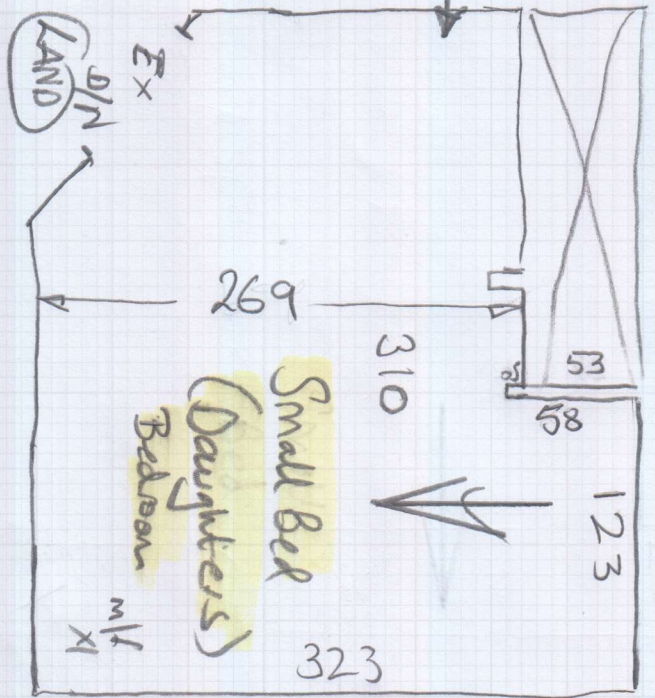 LAND
Ex
269
310
53
58
05
123
Small Bed
(Daughters)
Bedroom
323